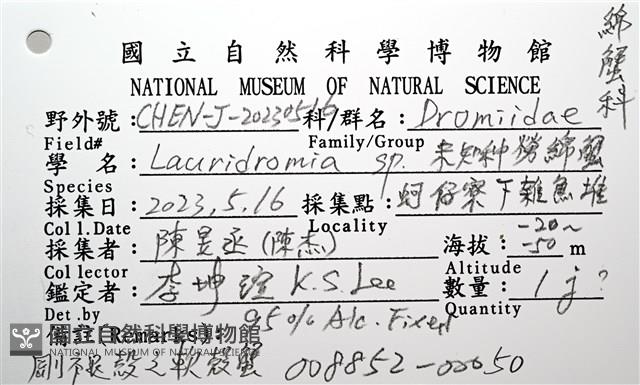 綿蟹科
國立自然科學博物館
NATIONAL MUSEUM OF NATURAL SCIENCE
野外號：CHEN-J-20230516 科/群名：Dromiidae
Field# Family/Group
學 名：Lauridromia sp. 未知种勞綿蟹
Species
採集日：2023.5.16 採集點：蚵仔寮下雜魚堆
Coll.Date Locality
採集者：陳昱丞(陳杰) 海拔：-20~-50 m
Collector Altitude
鑑定者：李坤瑄 K.S. Lee 數量：1 j?
Det.by Quantity
備註(Remarks): 95% Alc. Fixed
國立自然科學博物館
NATIONAL MUSEUM OF NATURAL SCIENCE
剛褪殼之軟殼蟹 008852-00050